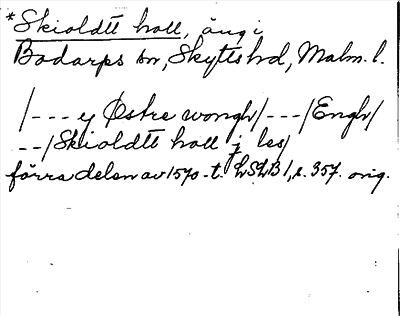 *Skioldtt holl, äng i
Bodarps sn, Skytts hd, Malm. l.
/--- y Østre wongh/---/Engh/
--/Skioldtt holl j les/
förra delen av 1570-t. LSLB 1, s. 357. orig.